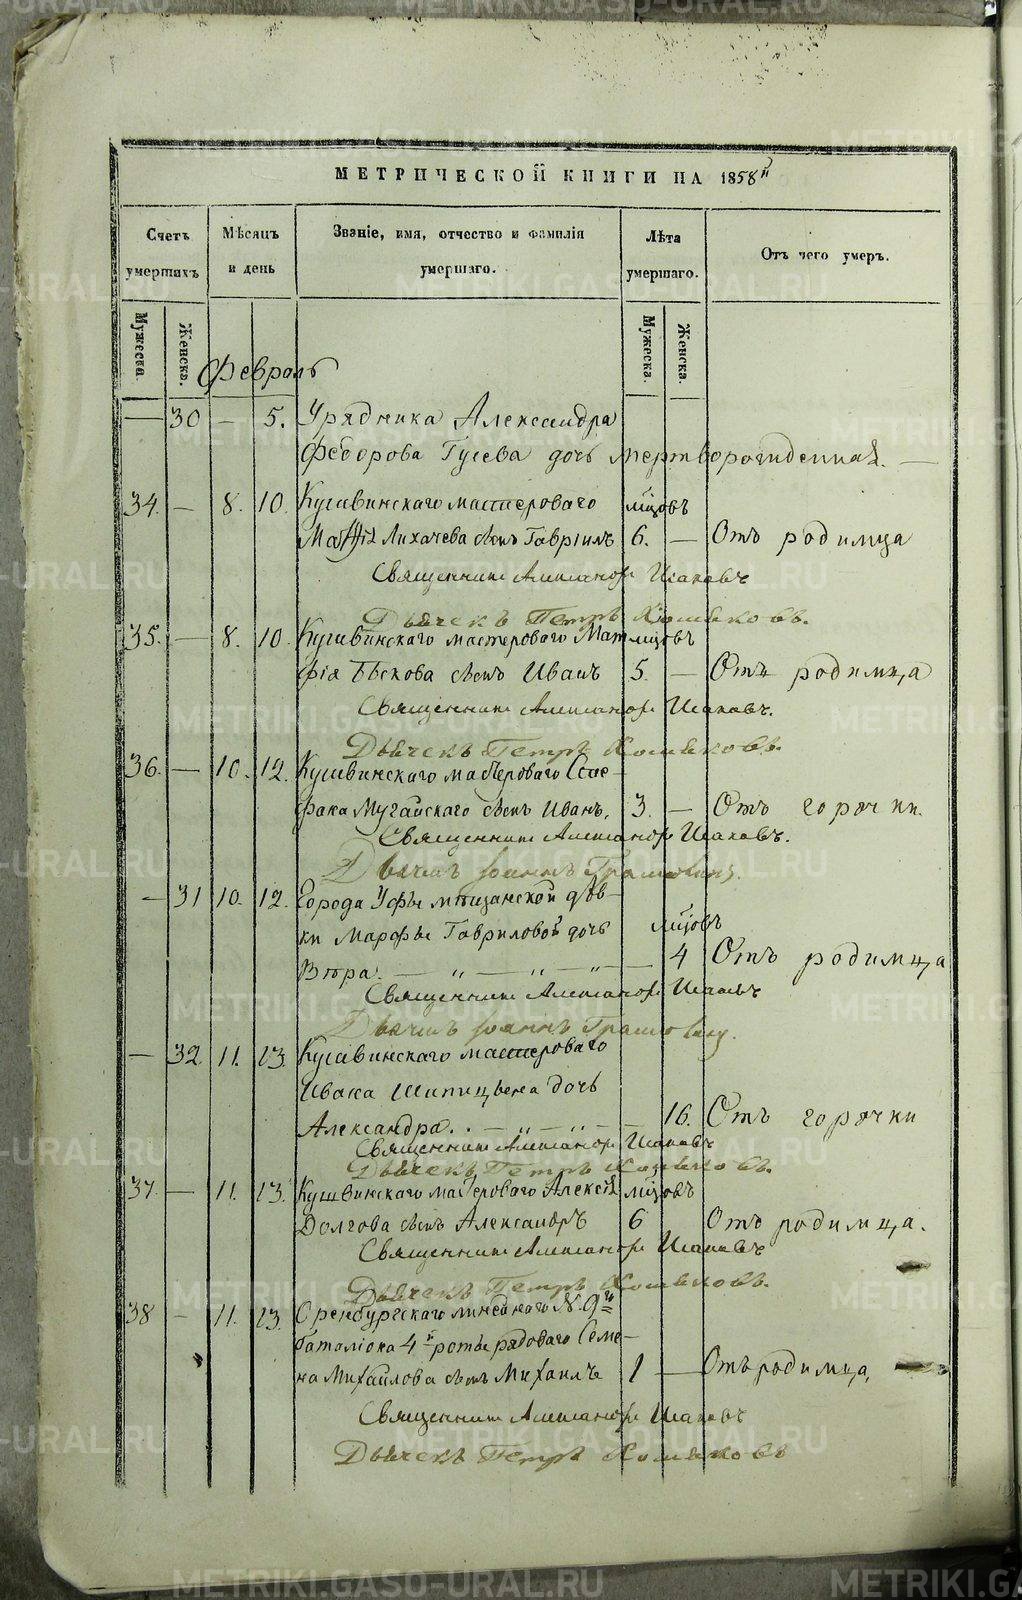 МЕТРИЧЕСКОЙ КНИГИ НА 1858й
Счетъ умершихъ
Мѣсяцъ и день
Званіе, имя, отчество и фамилія умершаго.
Лѣта умершаго.
Отъ чего умеръ.
Мужеска.
Женска.
Мужеска.
Женска.
Февраль
— 30 — 5. Урядника Александра
Федорова Гусева дочь мертворожденная. —
34. — 8. 10. Кушвинскаго мастероваго мцовъ
Матфія Лихачева сынъ Гавріилъ 6. — Отъ родимца
Священникъ Александръ Исаковъ
Дьячекъ Петръ Хомяковъ.
35. — 8. 10. Кушвинскаго мастероваго Мат мцовъ
фія Бѣскова сынъ Иванъ 5. — Отъ родимца
Священникъ Александръ Исаковъ.
Дьячекъ Петръ Хомяковъ.
36. — 10. 12. Кушвинскаго мастероваго
Мугайскаго сынъ Иванъ, 3. — Отъ горячки.
Священникъ Александръ Исаковъ.
Іоаннъ
— 31 10. 12. Города Уфы мѣщанской дѣв–
ки Марфы Гавриловой дочь мцовъ
Вѣра. — „ — „ — „ — 4 Отъ родимца
Священникъ Александръ Исаковъ
Іоаннъ
— 32. 11. 13. Кушвинскаго мастероваго
Ивана Шипицьена дочь
Александра. . — „ — „ — — 16. Отъ горячки
Священникъ Александръ Исаковъ
Дьячекъ Петръ Хомяковъ.
37. — 11. 13. Кушвинскаго мастероваго Алексѣя мцовъ
Долгова сынъ Александръ 6 Отъ родимца.
Священникъ Александръ Исаковъ
Дьячекъ Петръ Хомяковъ.
38 — 11. 13. Оренбургскаго линейнаго № 9го
баталіона 4й роты рядоваго Семе–
на Михайлова сынъ Михаилъ 1 — Отъ родимца,
Священникъ Александръ Исаковъ
Дьячекъ Петръ Хомяковъ
METRIKI.GASO-URAL.RU